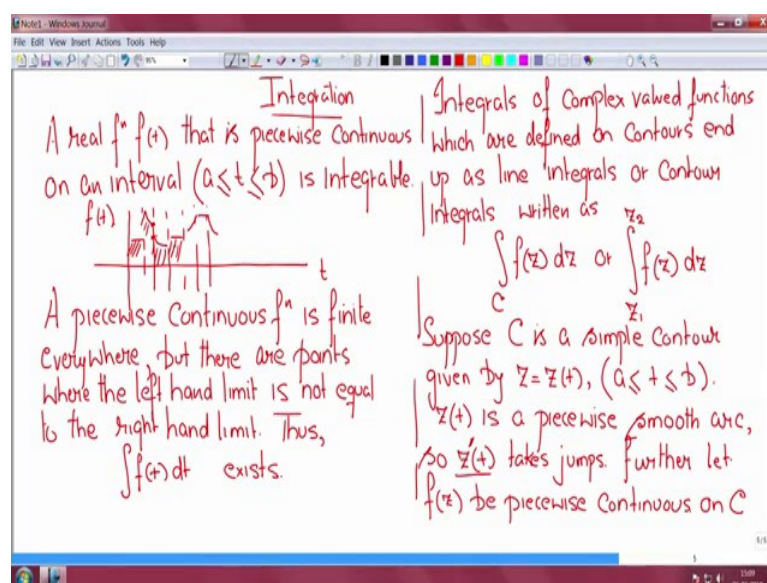 Note1 - Windows Journal
File Edit View Insert Actions Tools Help
Integration
A real fⁿ f(t) that is piecewise continuous
on an interval (a ≤ t ≤ b) is integrable.
f(t)
t
A piecewise continuous fⁿ is finite
everywhere, but there are points
where the left hand limit is not equal
to the right hand limit. Thus,
∫f(t) dt exists.
Integrals of complex valued functions
which are defined on contours end
up as line integrals or contour
integrals written as
∫_C f(z) dz or ∫_{z₁}^{z₂} f(z) dz
Suppose C is a simple contour
given by z = z(t), (a ≤ t ≤ b).
z(t) is a piecewise smooth arc,
so z'(t) takes jumps. Further let
f(z) be piecewise continuous on C
5
15:09